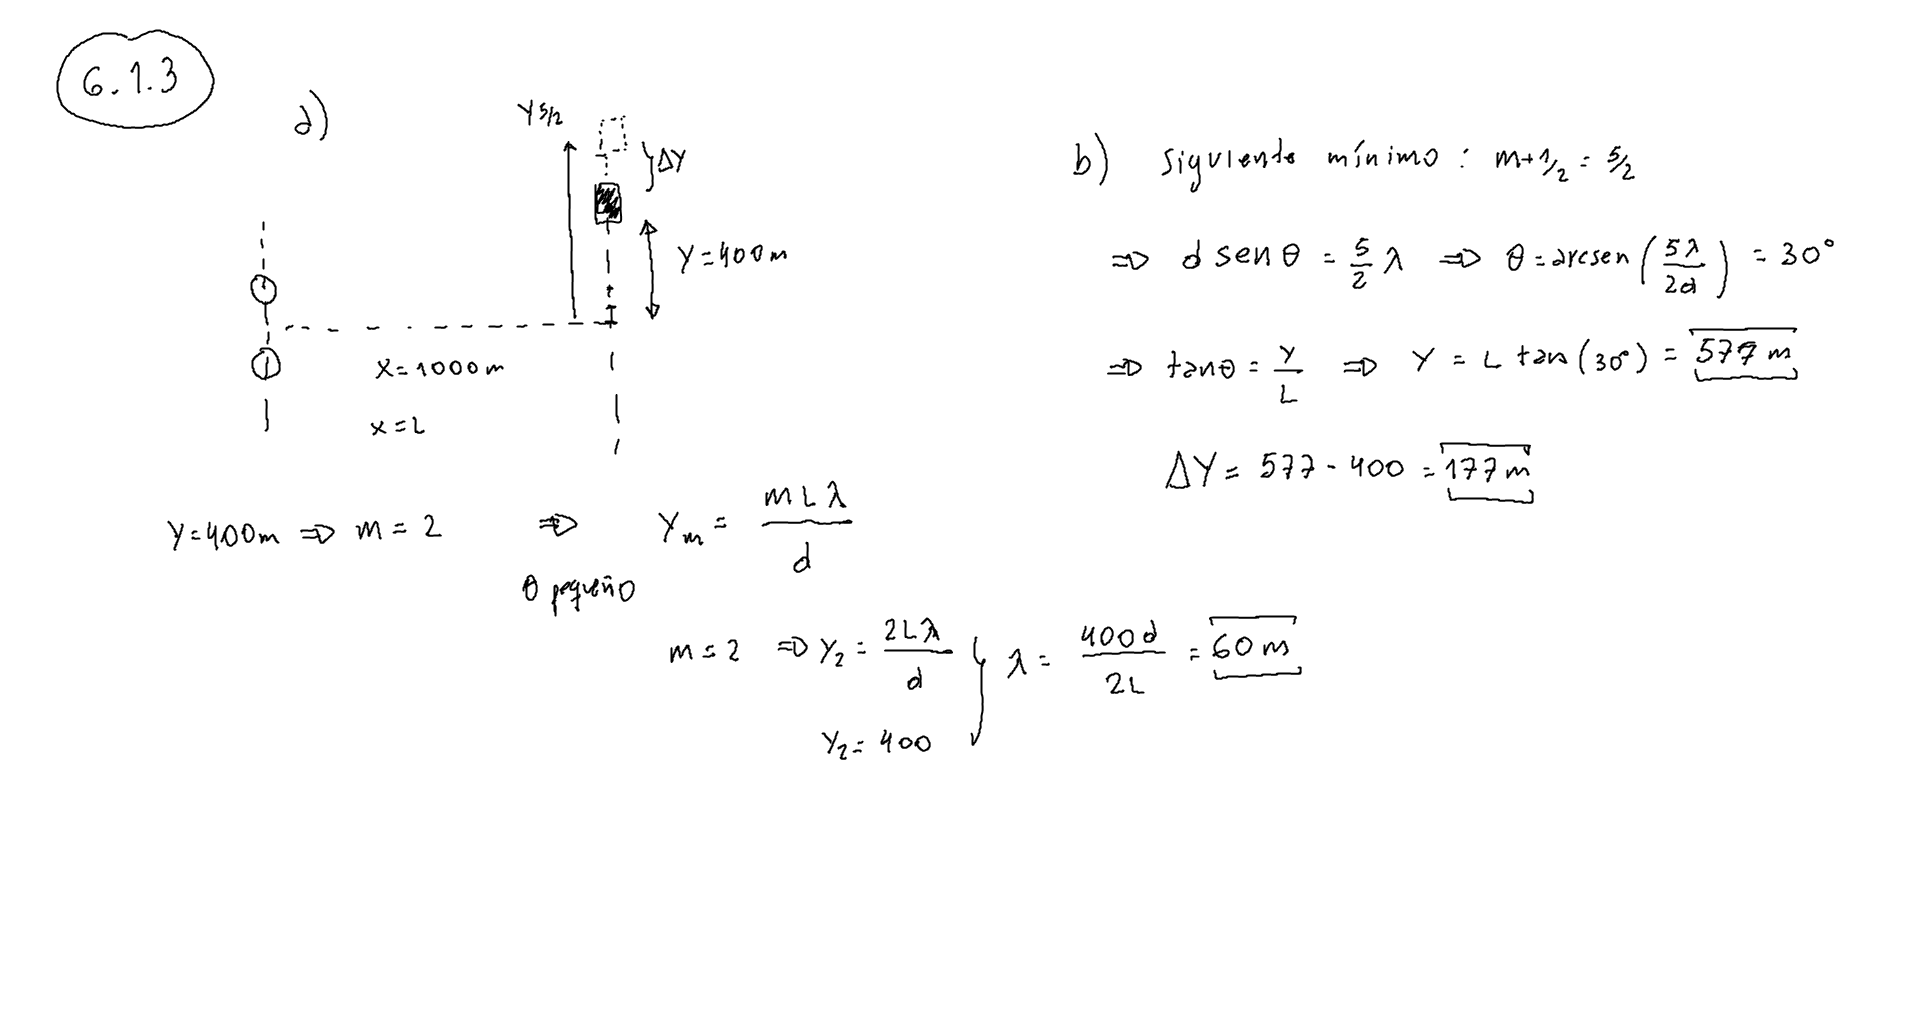 6.1.3
a)
Y 5/2
ΔY
Y=400m
X=1000m
x=L
Y=400m ⇒ m=2 ⇒ Ym = mLλ/d
θ pequeño
m=2 ⇒ Y2 = 2Lλ/d } λ = 400d/2L = 60m
Y2 = 400
b) siguiente mínimo : m+1/2 = 5/2
⇒ d sen θ = 5/2 λ ⇒ θ = arcsen (5λ/2d) = 30°
⇒ tanθ = Y/L ⇒ Y = L tan (30°) = 577m
ΔY = 577 - 400 = 177m